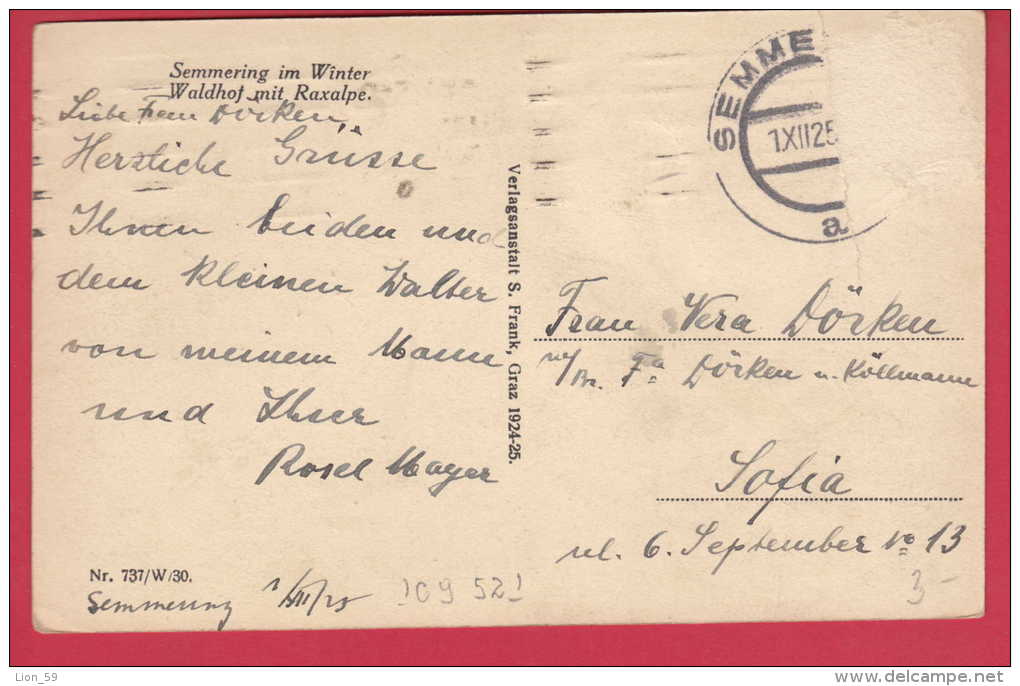 Semmering im Winter
Waldhof mit Raxalpe.
Liebe Frau Dörken,
Herzliche Grüsse
Ihnen beiden und
dem kleinen Walter
von meinem Mann
und Ihrer
Rosel Mayer
Nr. 737/W/30.
Semmering 1/XII/25
109 521
Verlagsanstalt S. Frank, Graz 1924-25.
SEMME
1XII25
a
Frau Vera Dörken
Fa Dörken u. Köllmann
Sofia
ul. 6. September No 13
3-
Lion_59
www.delcampe.net